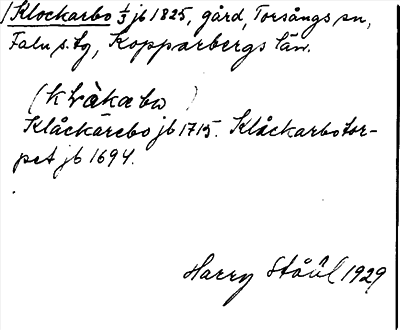 Klockarbo 1/3 jb 1825, gård, Torsångs sn,
Falu s. tg, Kopparbergs län.
Klåckärebo jb 1715. Klåckarbotor-
pet jb 1694.
Harry Ståhl 1929